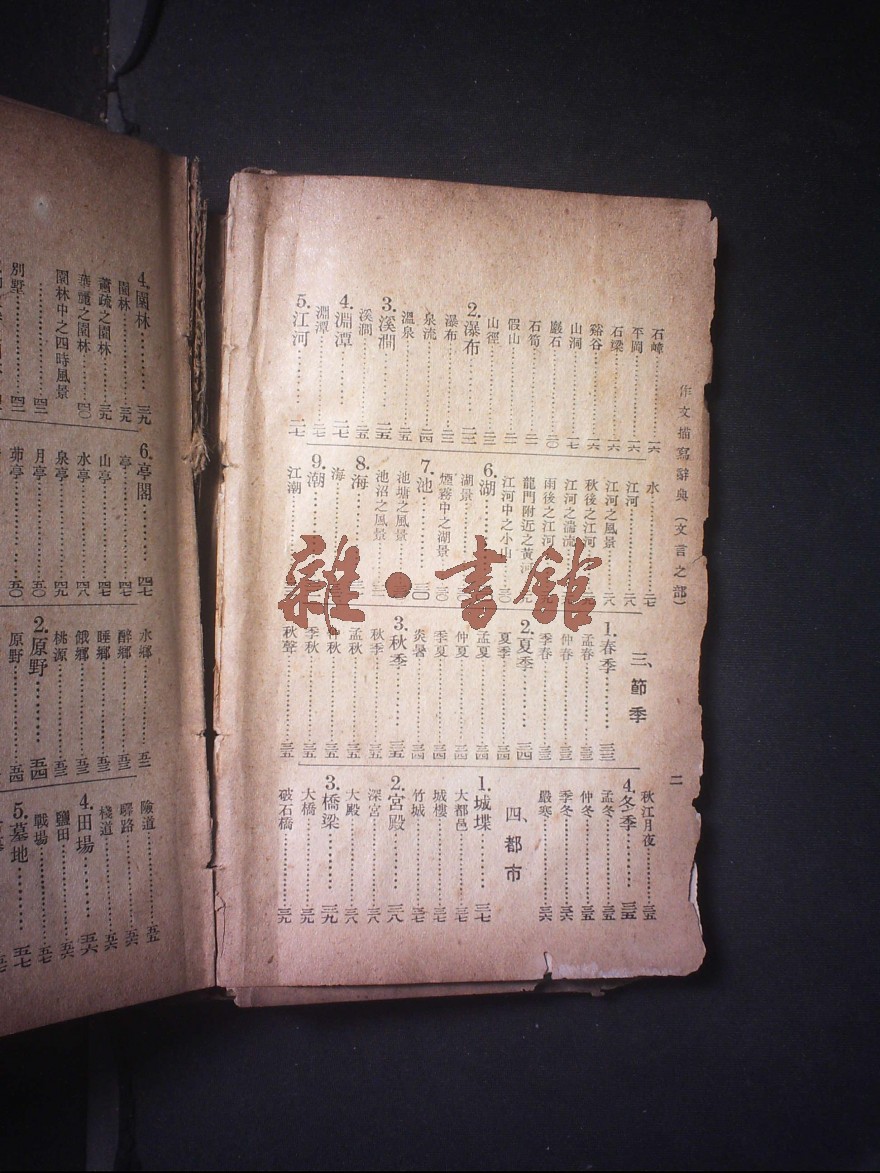 作文描寫辭典(文言之部)
二
石嶂………一六
平岡………一六
石梁………一六
谿谷………一六
山洞………一七
巖石………二〇
石筍………二一
假山………二一
山徑………二二
2.瀑布………二三
瀑布………二三
泉流………二四
溫泉………二五
3.溪澗………二五
溪澗………二五
4.淵潭………二七
淵潭………二七
5.江河………二七
水………二七
江河………二八
江河之風景………二八
秋後之江河
江河之湍流
雨後之江河
龍門附近之黃河
江河中之小山
6.湖
湖景
煙霧中之湖景
7.池………三〇
池塘之風景
池沼之風景
8.海
海
9.潮
江潮
三、節季
1.春季………三三
孟春………三三
仲春………三三
季春………三三
2.夏季………三四
夏季………三四
孟夏………三四
仲夏………三四
季夏………三四
炎暑………三四
3.秋季………三五
秋季………三五
孟秋………三五
仲秋………三五
季秋………三五
秋聲………三五
秋江月夜………三五
4.冬季………三五
孟冬………三五
仲冬………三五
季冬………三六
嚴寒………三六
四、都市
1.城堞………三七
大都邑………三七
城樓………三七
竹城………三七
2.宮殿………三八
深宮………三八
大殿………三八
3.橋梁………三九
大橋………三九
破石橋………三九
4.園林………三九
園林………三九
蕭疏之園林………三九
華麗之園林………四〇
園林中之四時風景
………四二
別墅………四二
6.亭閣………四七
亭………四七
山亭………四七
水亭………四八
泉亭………四九
月亭………五〇
茆亭………五〇
水鄉………五二
醉鄉………五三
睡鄉………五三
餓鄉………五三
桃源………五三
2.原野………五四
原野………五四
險道………五五
驛路………五六
棧道………五六
4.田場………五六
鹽田………五六
戰場………五七
5.墓地………五七
雜·書館